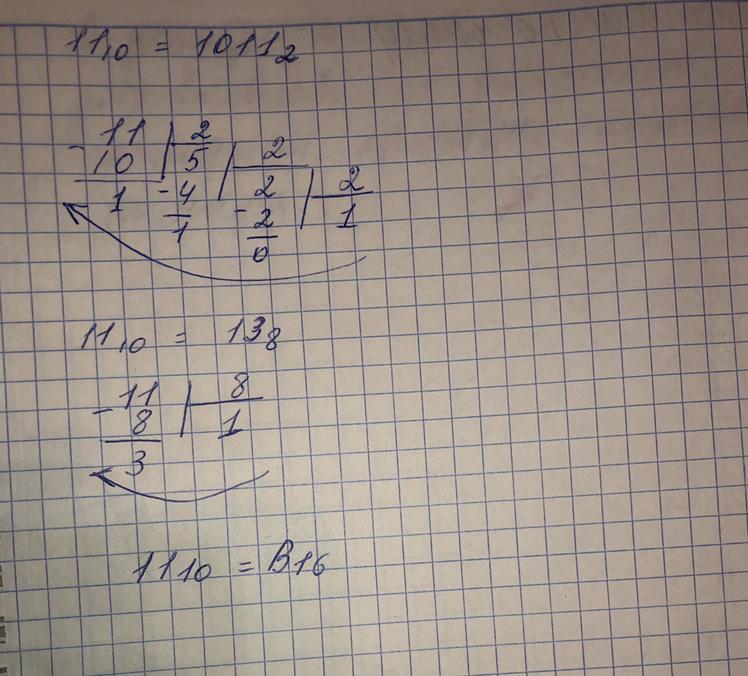 11₁₀ = 1011₂
- 11 | 2
10 | 5 | 2
1 - 4 | 2 | 2
1 - 2 | 1
0
11₁₀ = 13₈
- 11 | 8
8 | 1
3
11₁₀ = B₁₆